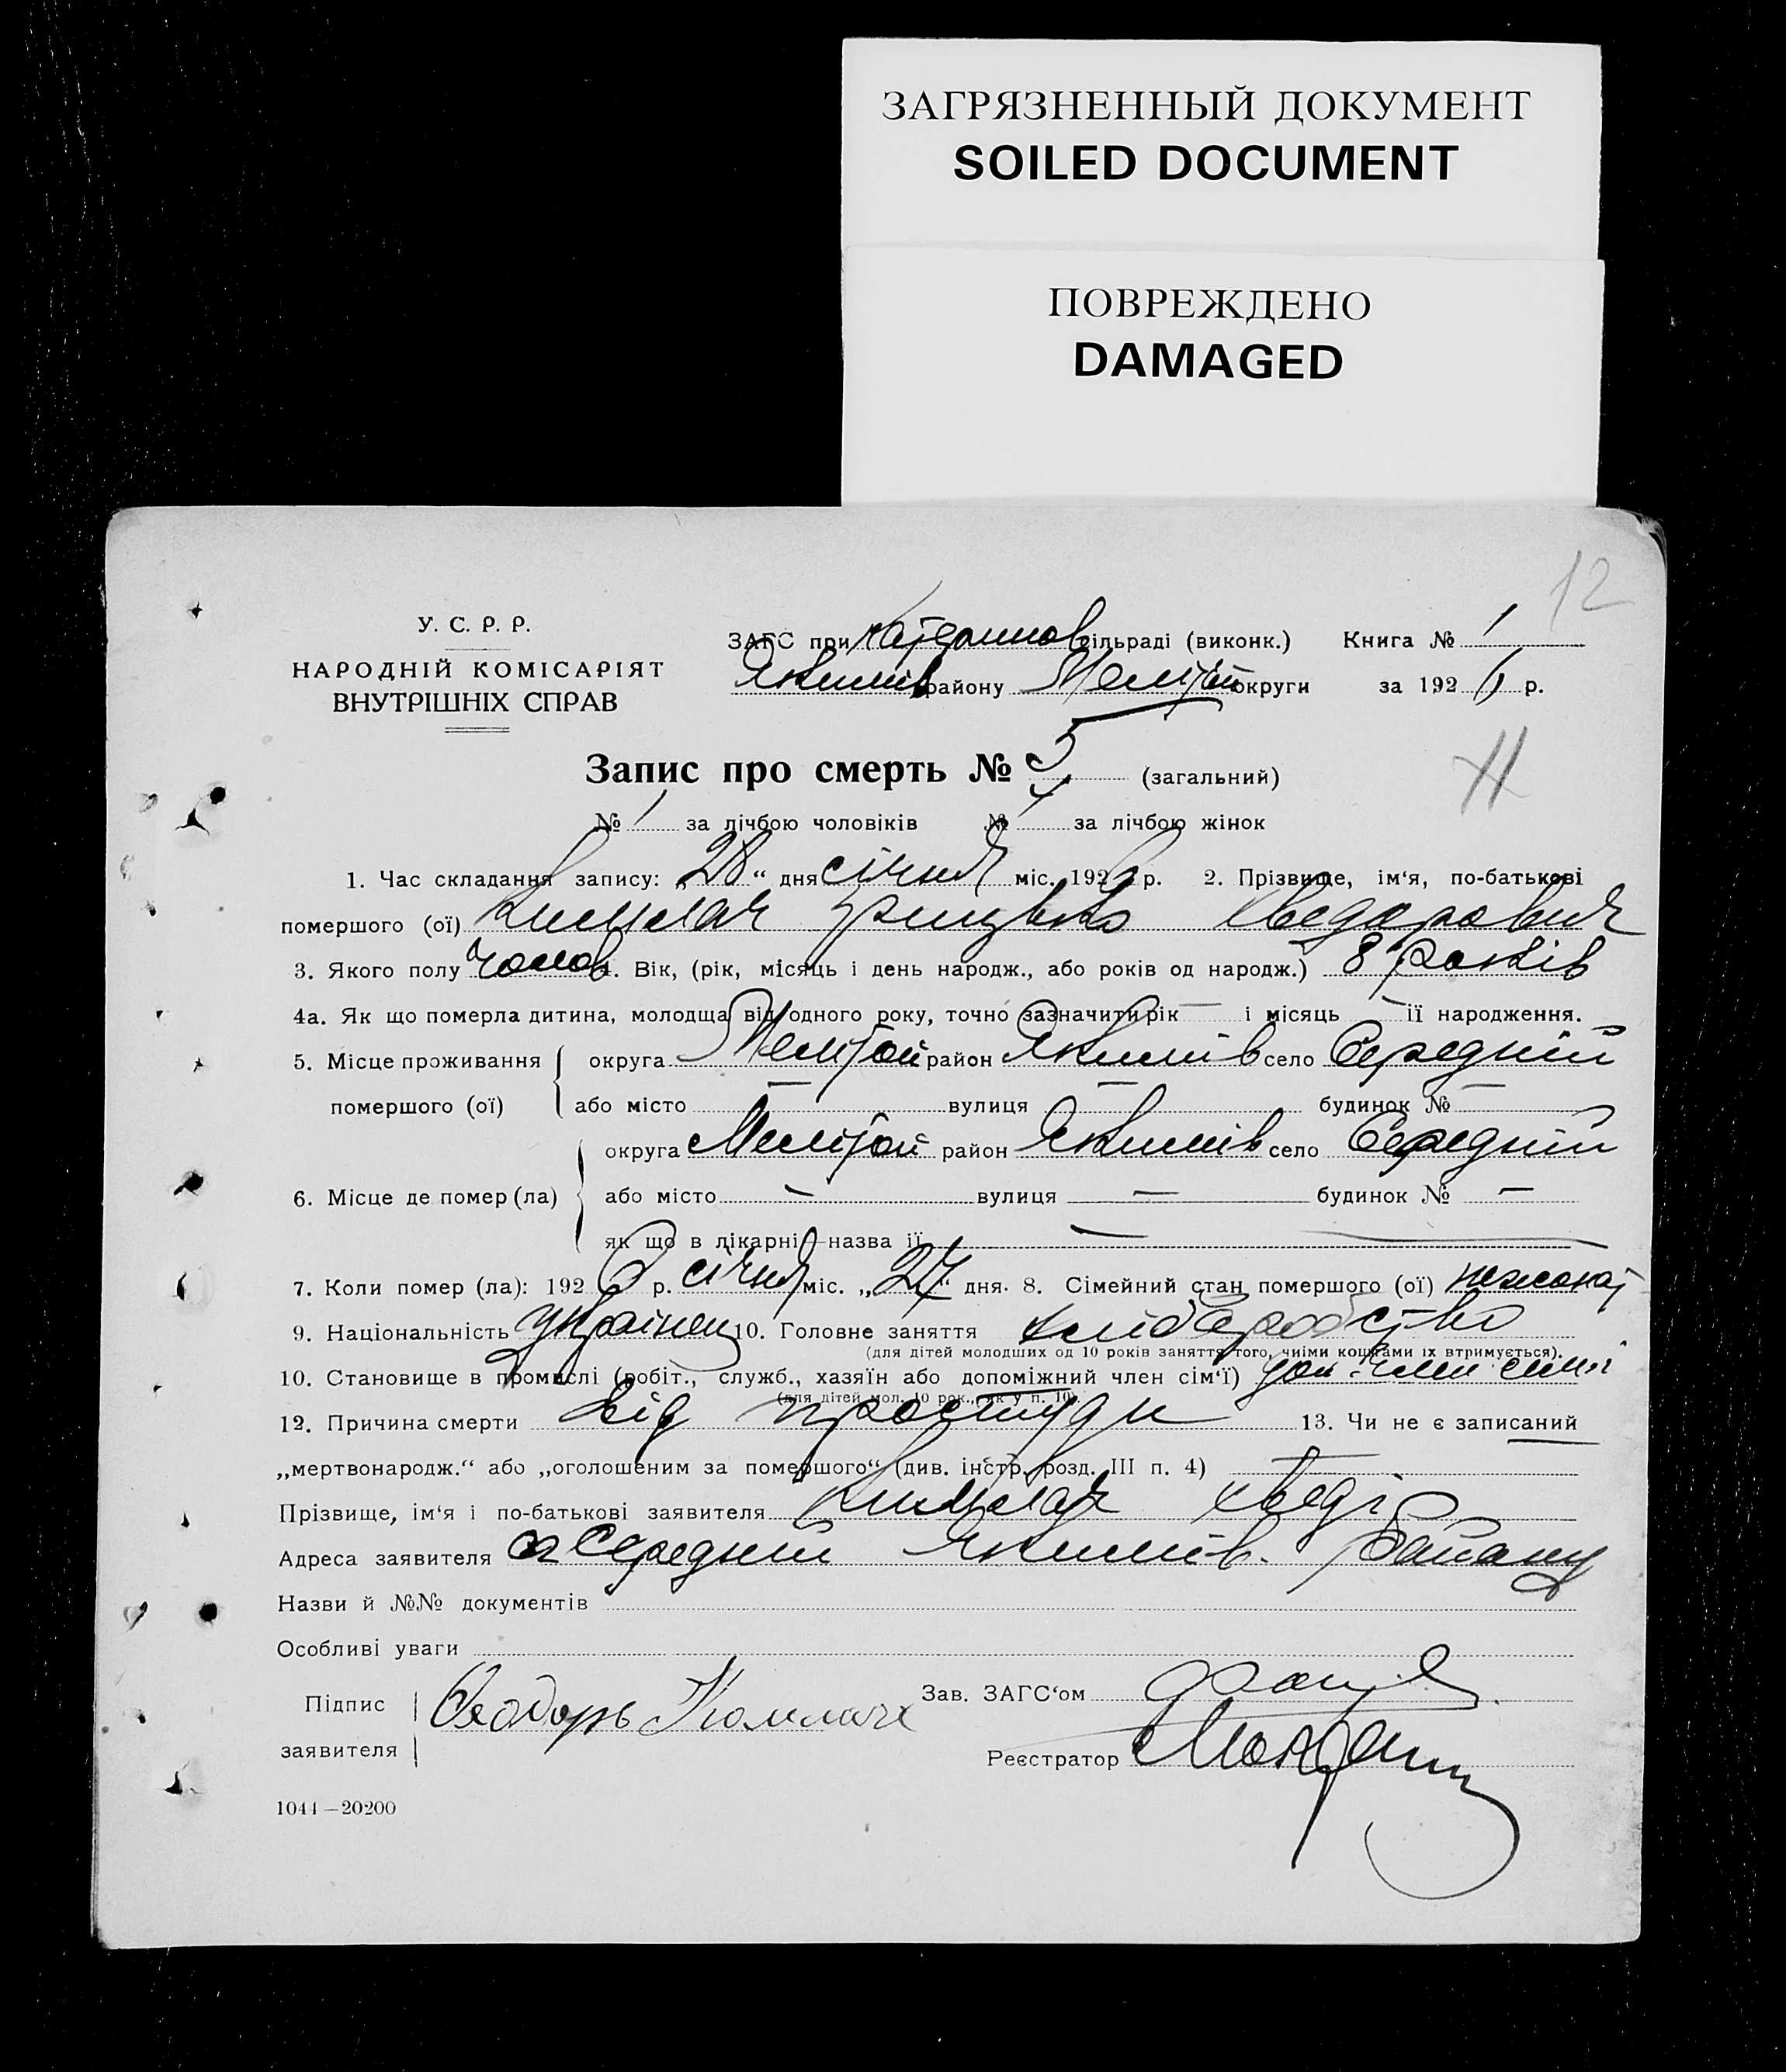 ЗАГРЯЗНЕННЫЙ ДОКУМЕНТ
SOILED DOCUMENT
ПОВРЕЖДЕНО
DAMAGED
12
У. С. Р. Р.
НАРОДНІЙ КОМІСАРІЯТ
ВНУТРІШНІХ СПРАВ
ЗАГС при сільраді (виконк.) Книга № 1
Якимів району Меліт округи за 1926 р.
Запис про смерть № 5 (загальний)
№ 1 за лічбою чоловіків № за лічбою жінок
1. Час складання запису: „28“ дня січня міс. 1926 р. 2. Прізвище, ім‘я, по-батькові
помершого (ої) Грицько Хведорович
3. Якого полу чолов 4. Вік, (рік, місяць і день народж., або років од народж.) 8 років
4а. Як що померла дитина, молодща від одного року, точно зазначити рік — і місяць — її народження.
5. Місце проживання округа Меліт район Якимів село Середній
помершого (ої) або місто — вулиця — будинок № —
округа Меліт район Якимів село Середній
6. Місце де помер (ла) або місто — вулиця — будинок № —
як що в лікарні—назва її —
7. Коли помер (ла): 1926 р. січня міс. „27“ дня. 8. Сімейний стан помершого (ої) нежонат
9. Національність українец 10. Головне заняття хліборобство
(для дітей молодших од 10 років заняття того, чиїми коштами їх втримується).
10. Становище в промислі (робіт., служб., хазяїн або допоміжний член сім‘ї) доп. член сімї
(для дітей мол. 10 рок., як у п. 10).
12. Причина смерти від простуди 13. Чи не є записаний
„мертвонародж.“ або „оголошеним за помершого“ (див. інстр. розд. III п. 4) —
Прізвище, ім‘я і по-батькові заявителя Хведір
Адреса заявителя с Середній Якимів. району
Назви й №№ документів
Особливі уваги
Підпис заявителя Феодоръ
Зав. ЗАГС‘ом
Реєстратор
1044—20200